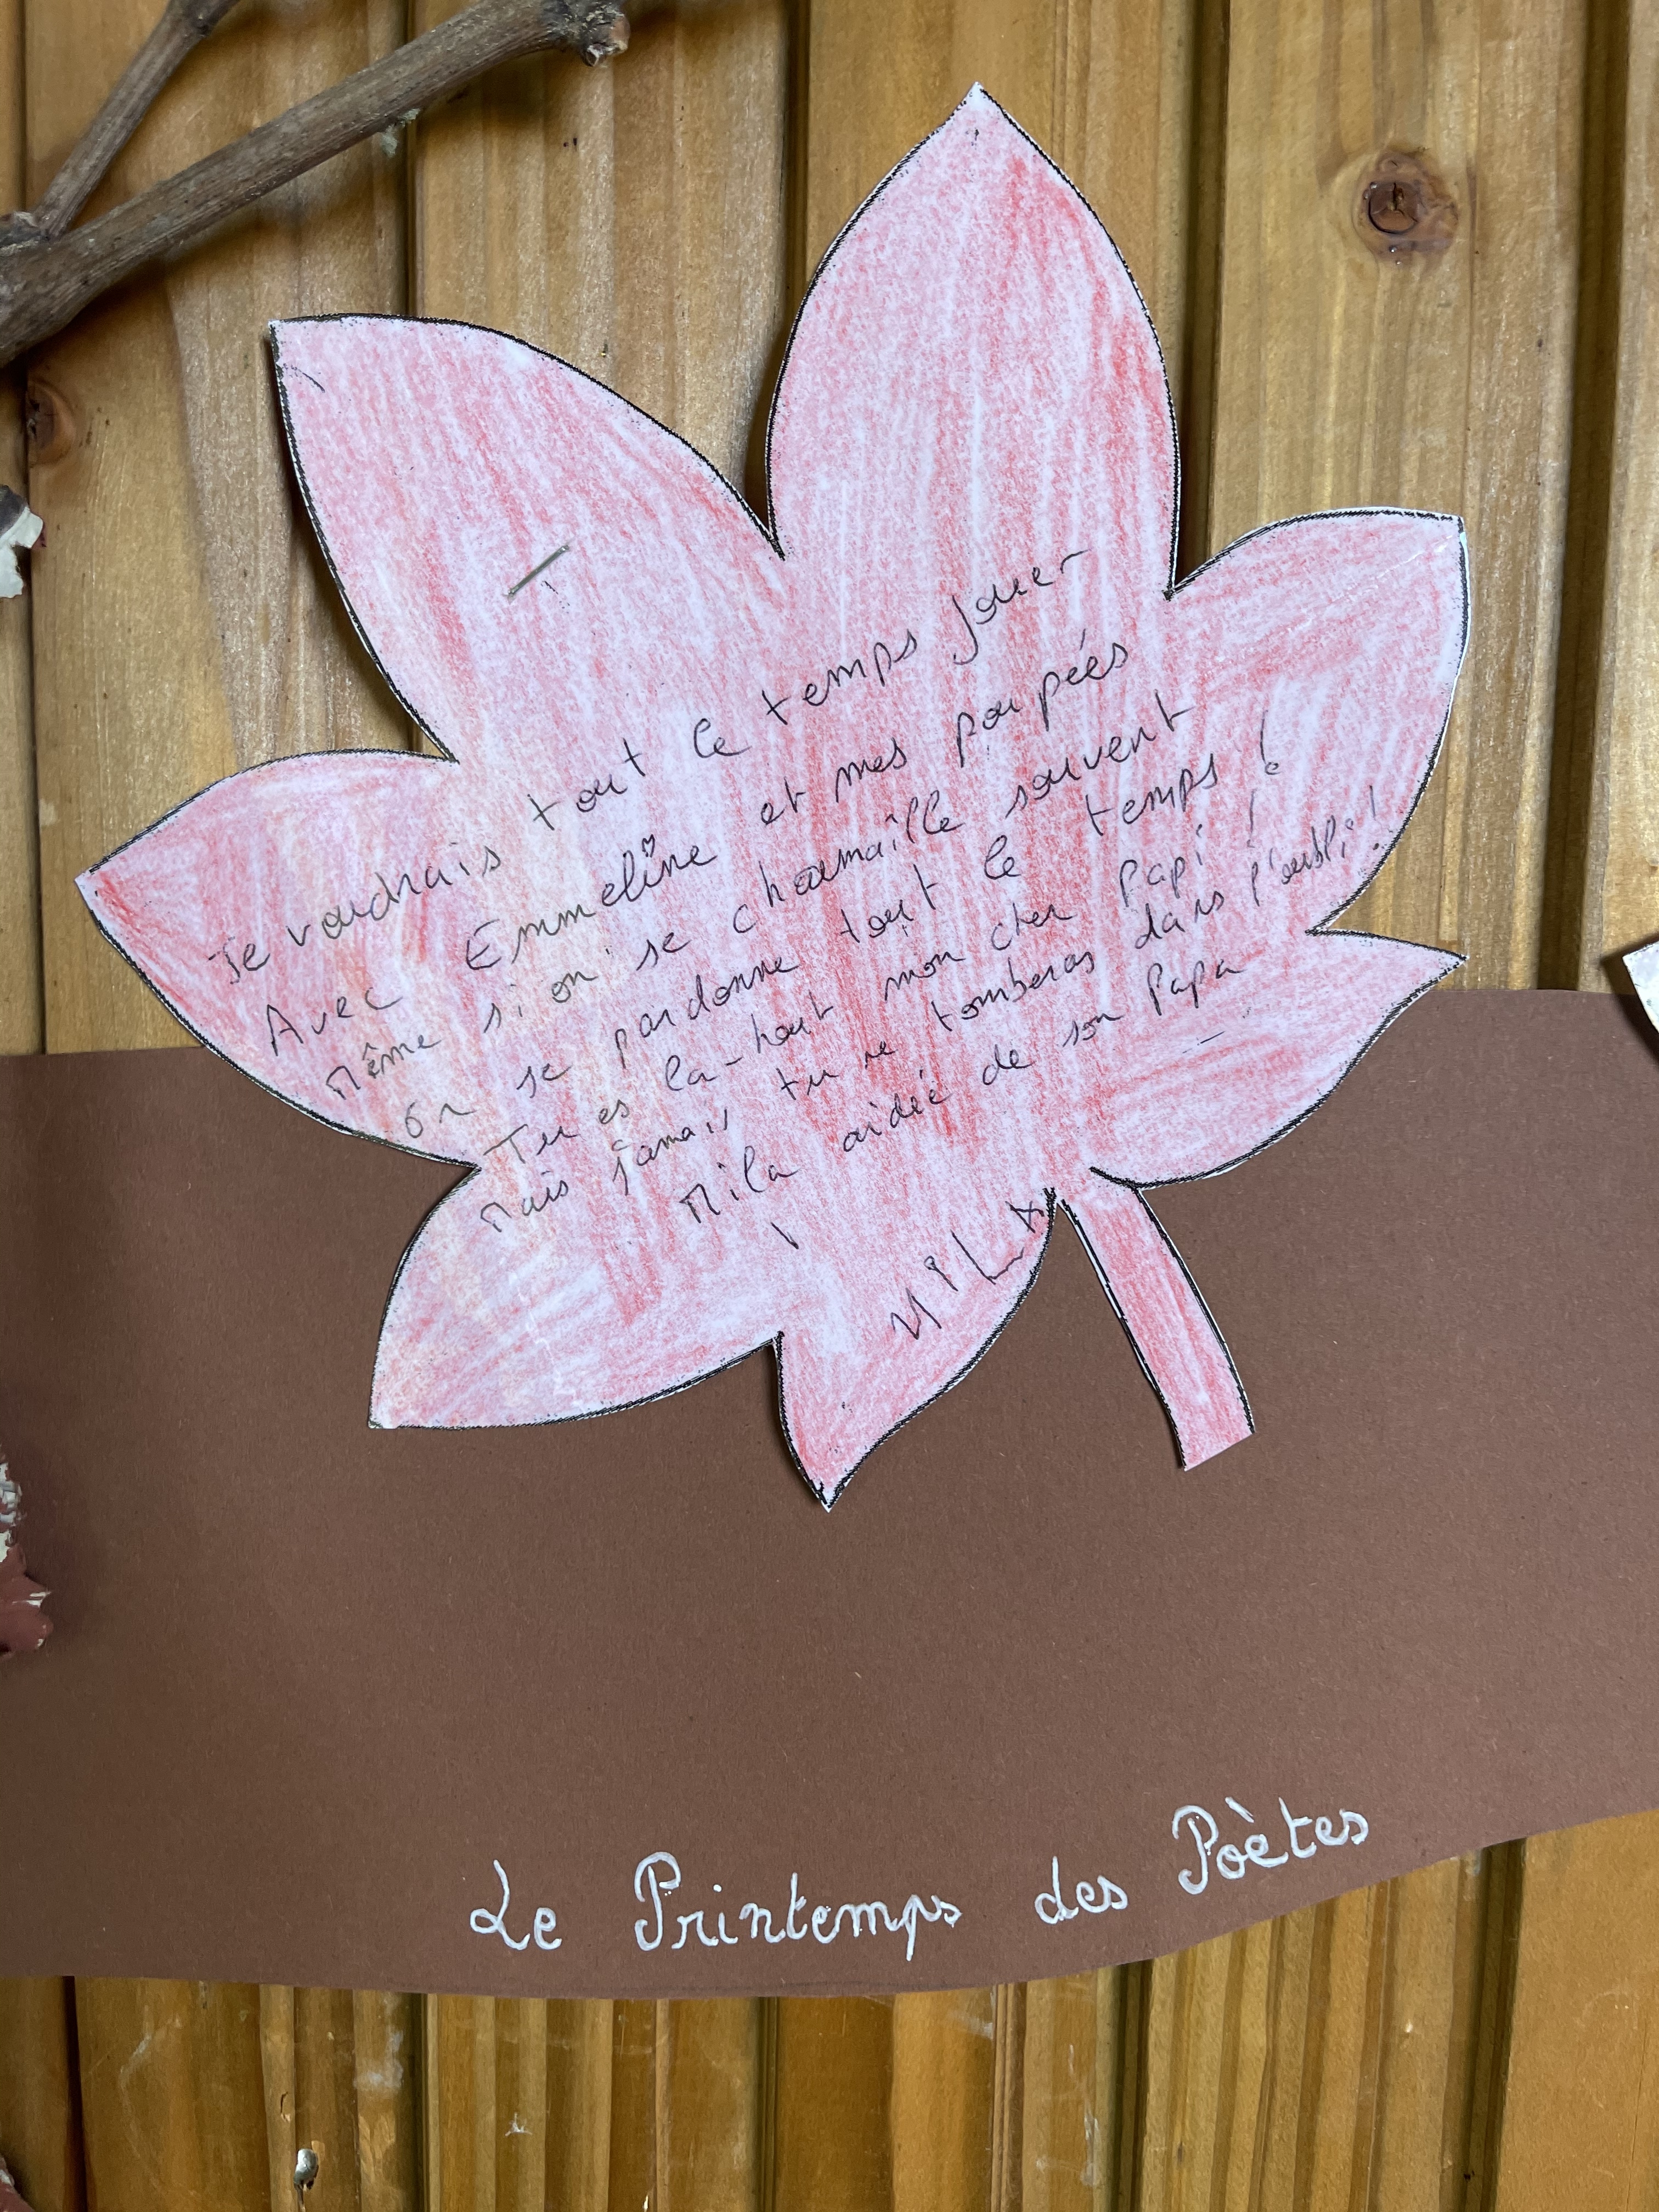 Je voudrais tout le temps jouer
Avec Emmeline et mes poupées
Même si on se chamaille souvent
On se pardonne tout le temps !
Tu es la-haut mon cher Papi !
Mais jamais tu ne tomberas dans l'oubli !
Mila aidée de son Papa
MILA
Le Printemps des Poètes